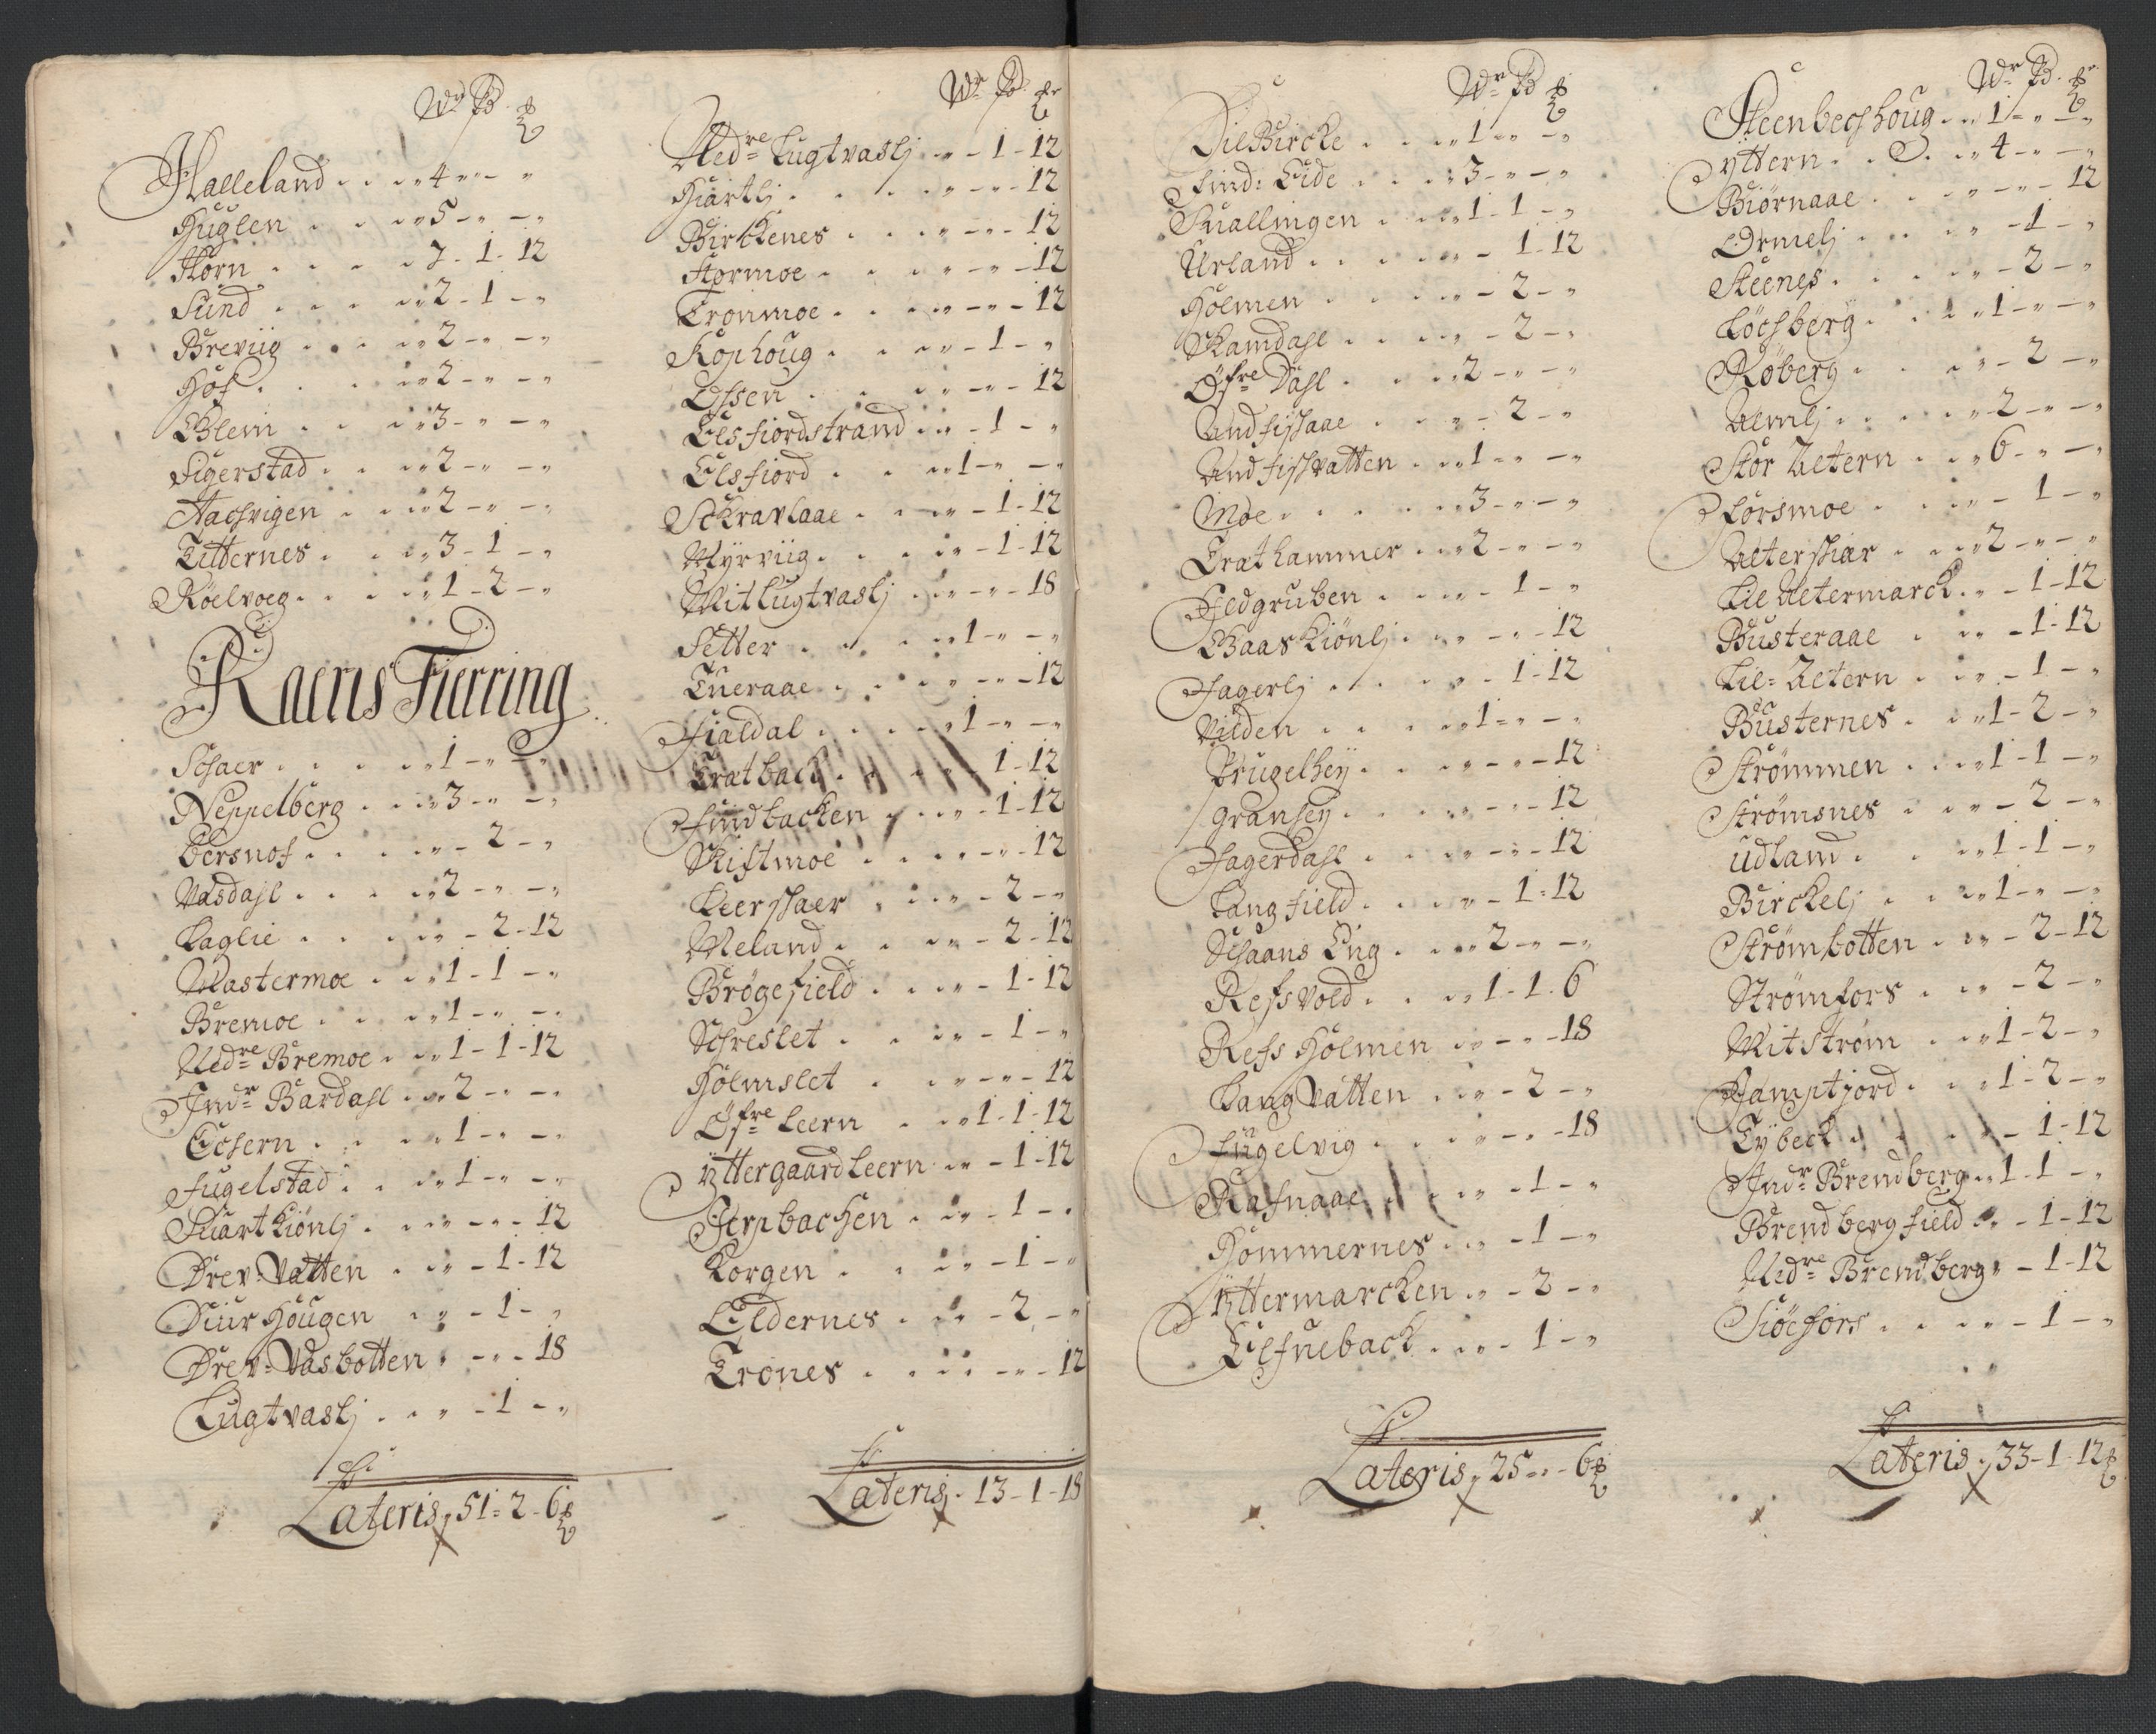 Wr Pd ℔
Halleland . . . „ 4 - „ - „
Huglen . . „ 5 - „ - „
Horn . . . . 7 - 1 - 12
Sund . . . „ 2 - 1 - „
Breviig . . . „ 2 - „ - „
Hof . . . „ 2 - „ - „
Blein . . „ 3 - „ - „
Sigerstad . . „ 2 - „ - „
Aachvigen . . „ 2 - „ - „
Titternes . . „ 3 - 1 - „
Röelvoeg . . . „ 1 - 2 - „
Raens Fierring
Schaer . . . . „ 1 - „ - „
Neppelberg . . „ 3 - „ - „
Bersnof . . . . „ - 2 - „
Vasdahl . . . „ 2 - „ - „
Laglie . . . „ - 2 - 12
Mastermoe . . „ 1 - 1 - „
Bremoe . . . „ 1 - „ - „
Nedre Bremoe . „ 1 - 1 - 12
Indr Bardahl . „ 2 - „ - „
Echern . . . „ 1 - „ - „
Fugelstad . . „ 1 - „ - „
Suartkiönlj . . „ - „ - 12
Drev: Vatten . „ - 1 - 12
Diurhougen . „ - 1 - „
Drev: Vasbotten . - „ - 18
Lugtvaslj . . . „ - 1 - „
Lateris. 51 - 2 - 6 ℔
Wr Pd ℔r
Nedre Lugtvaslj „ - 1 - 12
Hiartlj . . . . „ - „ - 12
Birckenes . . . „ - „ - 12
Stormoe . . . „ - „ - 12
Tronmoe . . „ - „ - 12
Kophoug . . . „ - 1 - „
Ossen . . . . „ - „ - 12
Elsfiordstrand . „ - 1 - „
Elsfiord . . „ 1 - „ - „
Sckravlaae . . „ - 1 - 12
Myrviig . . . „ - 1 - 12
Mitlugtvaslj . „ - „ - 18
Setter . . . . „ 1 - „ - „
Tueraae . . . . „ - „ - 12
Fialdal . . . . „ 1 - „ - „
Tratback . . . „ 1 - 12
Findbacken . . „ - 1 - 12
Skiftmoe . . . „ - „ - 12
Leerskaer . . „ - 2 - „
Meland . . . „ - 2 - 12
Brögefield . . . „ - 1 - 12
Schreslet . . „ - 1 - „
Holmslet . . „ - „ - 12
Öfre Leern . . „ 1 - 1 - 12
Yttergaard Leern „ - 1 - 12
Jerpbachen . „ - 1 - „
Korgen . . . „ - 1 - „
Eldernes . . „ - 2 - „
Trones . . . „ - „ - 12
Lateris. 13 - 1 - 18
Wr Pd ℔
Dilbircke . . . „ 1 - „ - „
Find: Eide . . . 3 - „ - „
Suallingen . . „ 1 - 1 - „
Urland . . . . „ - 1 - 12
Holmen . . . „ - 2 - „
Ramdahl . . . „ - 2 - „
Öfre Dahl . . . „ 2 - „ - „
Andfissaae . . . „ - 2 - „
Andfissvatten . „ 1 - „ - „
Moe . . . . . „ 3 - „ - „
Trathammer . „ 2 - „ - „
Jeldgruben . . . „ - 1 - „
Baaskiönlj . . „ - „ - 12
Fagerlj . . . . „ - 1 - 12
Vilden . . . . „ 1 - „ - „
Prugelhey . . „ - „ - 12
Granhey . . . „ - „ - 12
Fagerdahl . . . „ - „ - 12
Langfield . . . „ - 1 - 12
Schaans Eng . . „ 2 - „ - „
Refsvold . . „ 1 - 1 - 6
Refs Holmen . „ - „ - 18
Lang Vatten . „ - 2 - „
Fugelvig . . . „ - „ - 18
Rafnaae . . . „ - 1 - „
Hommernes . „ - 1 - „
Yttermarcken . „ - 2 - „
Elfneback . „ - 1 - „
Lateris. 25 - „ - 6 ℔
Wr Pd ℔r
Steenbechhoug . „ 1 - „ - „
Yttern . . . „ 4 - „ - „
Biörnaae . . . „ - „ - 12
Ormelj . . . „ - 1 - „
Steenes . . . . „ - 2 - „
Löchberg . . „ 1 - „ - „
Röberg . . . „ - 2 - „
Almlj . . . . „ 2 - „ - „
Stor Altern . . „ 6 - „ - „
Forsmoe . . . „ - 1 - „
Alterskiær . . „ 2 - „ - „
Lil Altermarck . „ - 1 - 12
Busteraae . „ - 1 - 12
Lil: Altern . . „ - 1 - „
Busternes . . „ 1 - 2 - „
Strömmen . . „ 1 - 1 - „
Strömsnes . . „ - 2 - „
Udland . . . „ 1 - 1 - „
Birckelj . . „ 1 - „ - „
Strömbotten . „ - 2 - 12
Strömfors . . „ - 2 - „
Mitström . . „ 1 - 2 - „
Jamptjord . . „ 1 - 2 - „
Tybeck . . . . „ - 1 - 12
Indr Brendberg „ 1 - 1 - „
Brendbergfield „ - 1 - 12
Nedre Brendberg „ - 1 - 12
Siöefors . . . „ - 1 - „
Lateris. 33 - 1 - 12 ℔